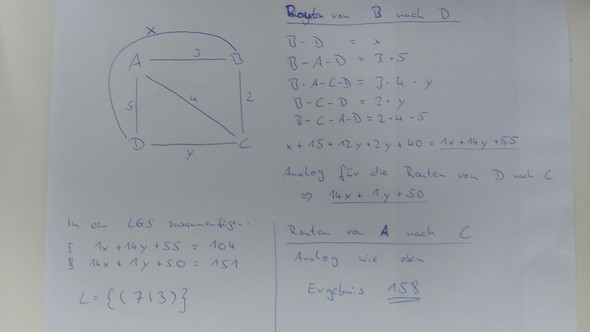 x
A 3 B
5 4 2
D y C
Routen von B nach D
B-D = x
B-A-D = 3·5
B-A-C-D = 3·4·y
B-C-D = 2·y
B-C-A-D = 2·4·5
x+15+12y+2y+40 = 1x+14y+55
Analog für die Routen von D nach C
⇒ 14x+1y+50
In ein LGS zusammenfügen:
I 1x+14y+55 = 104
II 14x+1y+50 = 151
L={(7|3)}
Routen von A nach C
Analog wie oben
Ergebnis 158